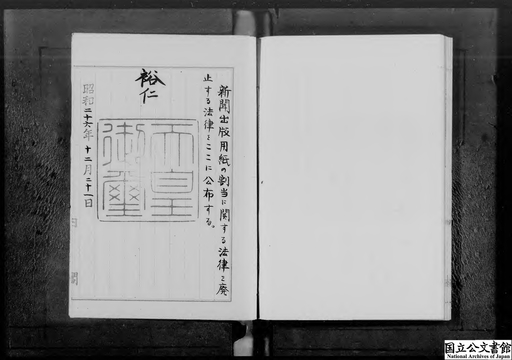 新聞出版用紙の割当に関する法律を廃
止する法律をここに公布する。
裕仁
天皇
御璽
昭和二十六年十二月二十一日
国立公文書館
National Archives of Japan